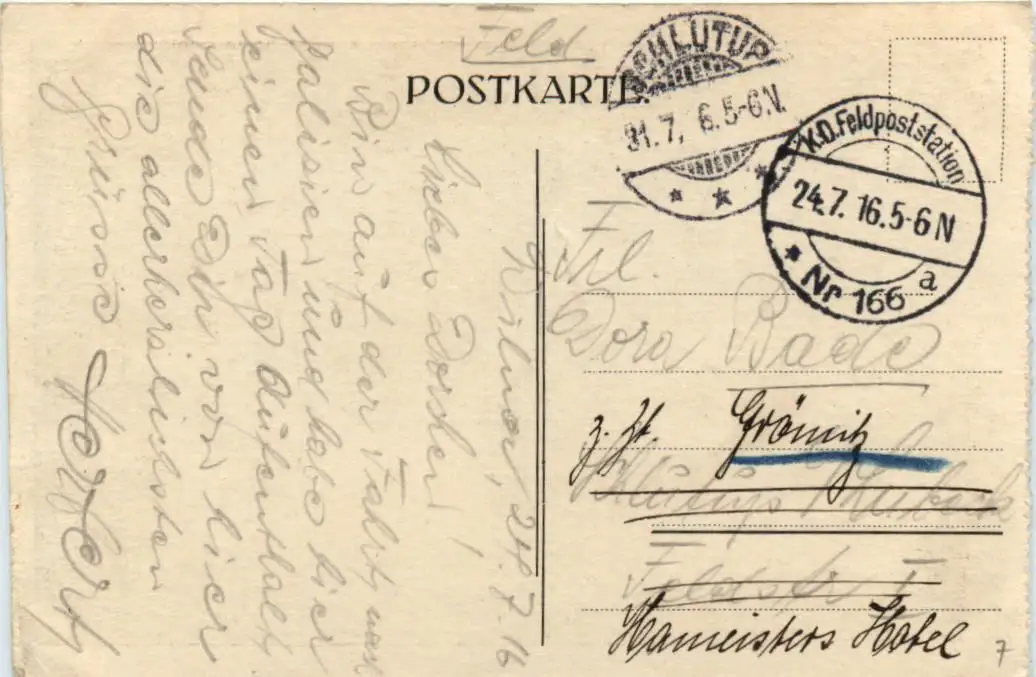 Feld
POSTKARTE.
SCHLUTUP
31.7. 6.5-6N.
K.D. Feldpoststation
24.7. 16.5-6N
Nr 166 a
Wilna, 24.7.16
Liebes Dorchen!
Bin auf der Fahrt nach
Galizien und habe hier
einen Tag Aufenthalt.
Sende Dir von hier
die allerherzlichsten
Grüsse
Frl.
Dora Bade
z. Zt. Grömitz
Schlutup / Lübeck
Feldstr
Hameisters Hotel
7